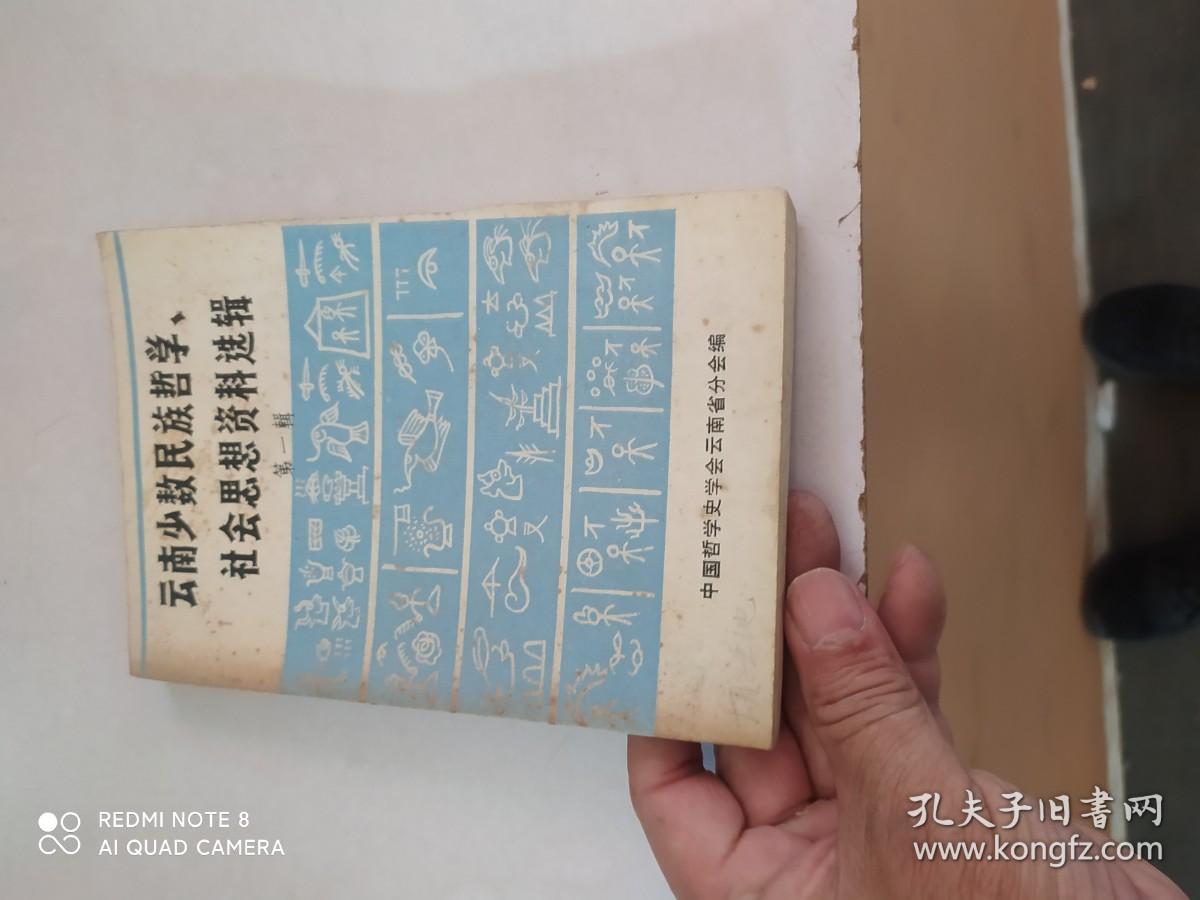 云南少数民族哲学、
社会思想资料选辑
第一輯
中国哲学史学会云南省分会编
REDMI NOTE 8
AI QUAD CAMERA
孔夫子旧书网
www.kongfz.com